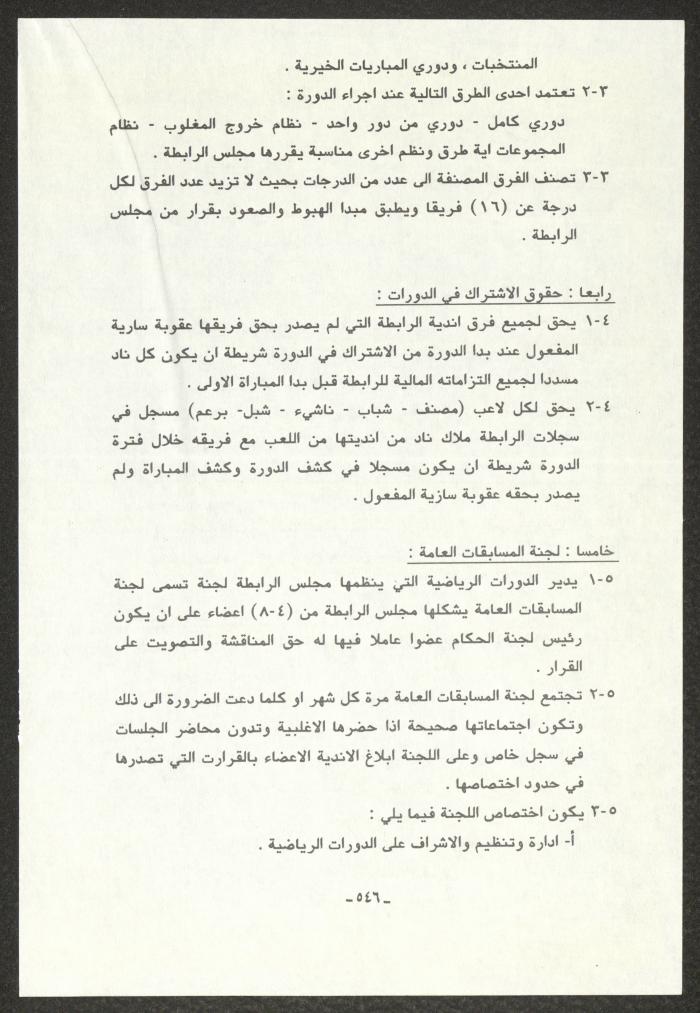 المنتخبات ، ودوري المباريات الخيرية .
٣-٢ تعتمد احدى الطرق التالية عند اجراء الدورة :
دوري كامل - دوري من دور واحد - نظام خروج المغلوب - نظام
المجموعات اية طرق ونظم اخرى مناسبة يقررها مجلس الرابطة .
٣-٣ تصنف الفرق المصنفة الى عدد من الدرجات بحيث لا تزيد عدد الفرق لكل
درجة عن (١٦) فريقا ويطبق مبدا الهبوط والصعود بقرار من مجلس
الرابطة .
رابعا : حقوق الاشتراك في الدورات :
٤-١ يحق لجميع فرق اندية الرابطة التي لم يصدر بحق فريقها عقوبة سارية
المفعول عند بدا الدورة من الاشتراك في الدورة شريطة ان يكون كل ناد
مسددا لجميع التزاماته المالية للرابطة قبل بدا المباراة الاولى .
٤-٢ يحق لكل لاعب (مصنف - شباب - ناشيء - شبل- برعم) مسجل في
سجلات الرابطة ملاك ناد من انديتها من اللعب مع فريقه خلال فترة
الدورة شريطة ان يكون مسجلا في كشف الدورة وكشف المباراة ولم
يصدر بحقه عقوبة سازية المفعول .
خامسا : لجنة المسابقات العامة :
٥-١ يدير الدورات الرياضية التي ينظمها مجلس الرابطة لجنة تسمى لجنة
المسابقات العامة يشكلها مجلس الرابطة من (٤-٨) اعضاء على ان يكون
رئيس لجنة الحكام عضوا عاملا فيها له حق المناقشة والتصويت على
القرار .
٥-٢ تجتمع لجنة المسابقات العامة مرة كل شهر او كلما دعت الضرورة الى ذلك
وتكون اجتماعاتها صحيحة اذا حضرها الاغلبية وتدون محاضر الجلسات
في سجل خاص وعلى اللجنة ابلاغ الاندية الاعضاء بالقرارت التي تصدرها
في حدود اختصاصها .
٥-٣ يكون اختصاص اللجنة فيما يلي :
أ- ادارة وتنظيم والاشراف على الدورات الرياضية .
ـ ٥٤٦ ـ